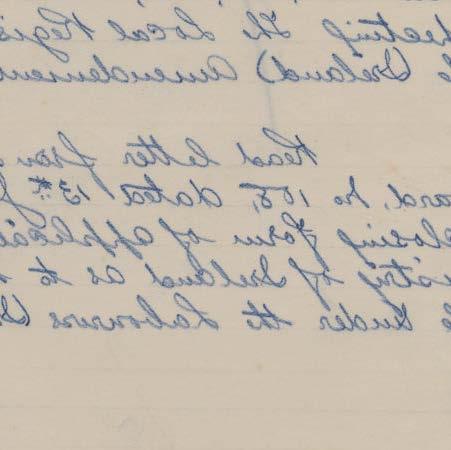 ecting The Local Regis
(Ireland) Amendment
Read letter from
oard, No 108, dated 15th
closing form of applica
istry of Ireland as to
under the Labourers